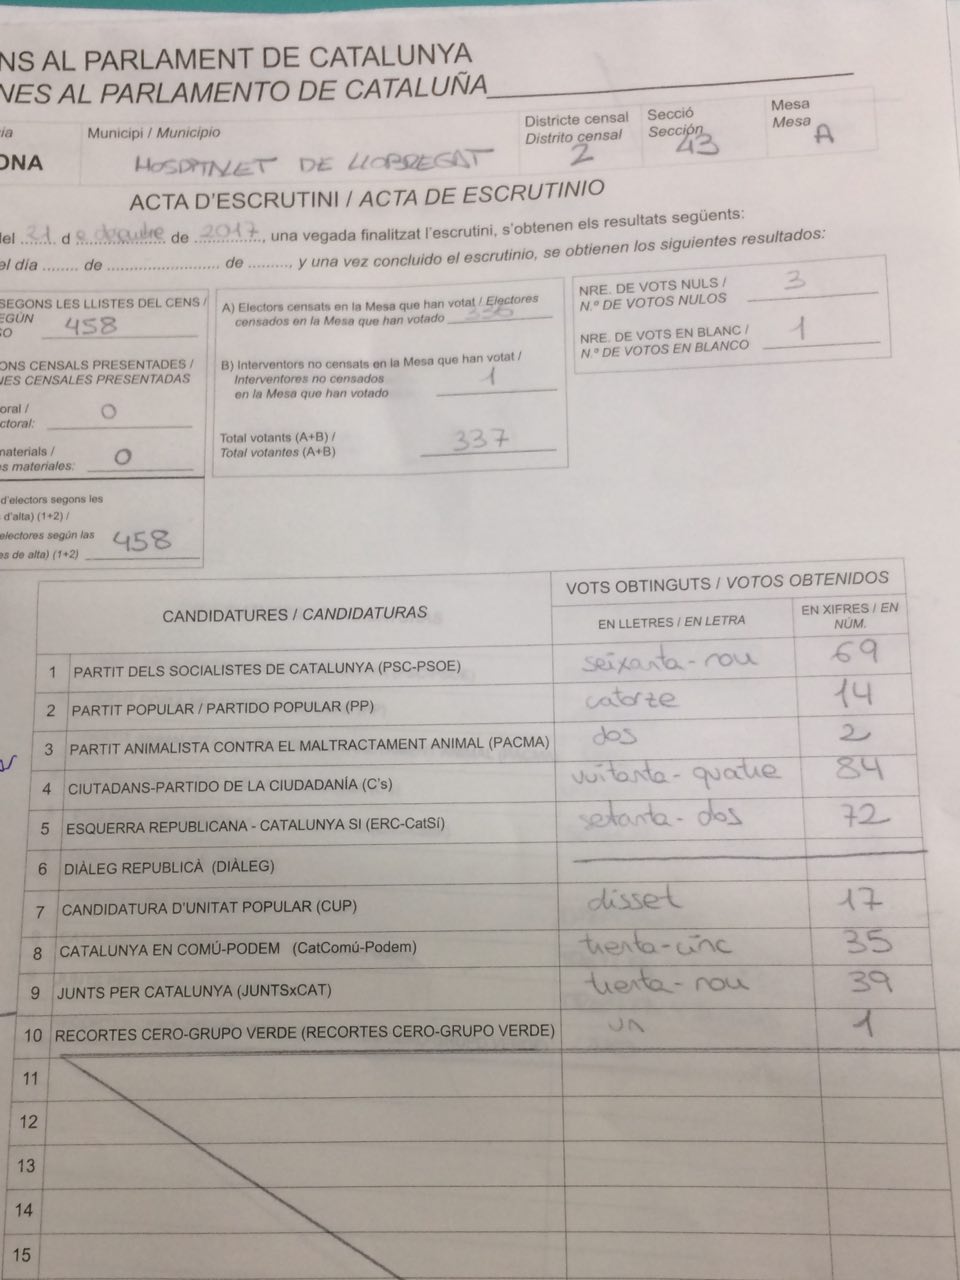 NS AL PARLAMENT DE CATALUNYA
NES AL PARLAMENTO DE CATALUÑA
ia
Municipi / Municipio
Districte censal
Distrito censal
2
Secció
Sección
43
Mesa
Mesa
A
ONA
HOSPITALET DE LLOBREGAT
ACTA D'ESCRUTINI / ACTA DE ESCRUTINIO
el 21 de desembre de 2017, una vegada finalitzat l'escrutini, s'obtenen els resultats següents:
el día ........ de ........................ de ........., y una vez concluido el escrutinio, se obtienen los siguientes resultados:
SEGONS LES LLISTES DEL CENS /
EGÚN
SO 458
ONS CENSALS PRESENTADES /
NES CENSALES PRESENTADAS
oral /
ctoral: 0
materials /
s materiales: 0
d'electors segons les
d'alta) (1+2) /
electores según las
es de alta) (1+2) 458
A) Electors censats en la Mesa que han votat / Electores
censados en la Mesa que han votado 336
B) Interventors no censats en la Mesa que han votat /
Interventores no censados
en la Mesa que han votado 1
Total votants (A+B) /
Total votantes (A+B) 337
NRE. DE VOTS NULS /
N.º DE VOTOS NULOS 3
NRE. DE VOTS EN BLANC /
N.º DE VOTOS EN BLANCO 1
CANDIDATURES / CANDIDATURAS
VOTS OBTINGUTS / VOTOS OBTENIDOS
EN LLETRES / EN LETRA
EN XIFRES / EN
NÚM.
1 PARTIT DELS SOCIALISTES DE CATALUNYA (PSC-PSOE) seixanta-nou 69
2 PARTIT POPULAR / PARTIDO POPULAR (PP) catorze 14
3 PARTIT ANIMALISTA CONTRA EL MALTRACTAMENT ANIMAL (PACMA) dos 2
4 CIUTADANS-PARTIDO DE LA CIUDADANÍA (C's) vuitanta-quatre 84
5 ESQUERRA REPUBLICANA - CATALUNYA SI (ERC-CatSí) setanta-dos 72
6 DIÀLEG REPUBLICÀ (DIÀLEG)
7 CANDIDATURA D'UNITAT POPULAR (CUP) disset 17
8 CATALUNYA EN COMÚ-PODEM (CatComú-Podem) trenta-cinc 35
9 JUNTS PER CATALUNYA (JUNTSxCAT) trenta-nou 39
10 RECORTES CERO-GRUPO VERDE (RECORTES CERO-GRUPO VERDE) un 1
11
12
13
14
15